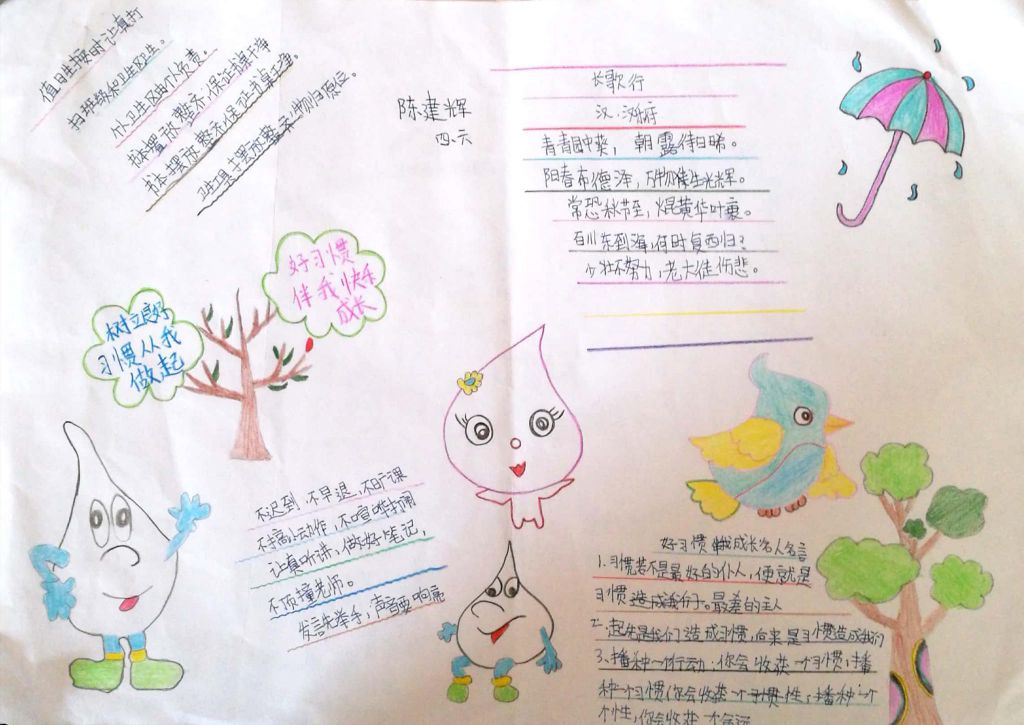 值日生按时认真打
扫班级和卫生区卫生。
个人卫生区由个人负责。
书本摆放整齐,保证书桌干净
书本摆放整齐,保证书桌干净。
卫生工具摆放整齐,物归原位。
陈建辉
四、六
长歌行
汉·乐府
青青园中葵,朝露待日晞。
阳春布德泽,万物生光辉。
常恐秋节至,焜黄华叶衰。
百川东到海,何时复西归?
少壮不努力,老大徒伤悲。
好习惯
伴我快乐
成长
树立良好
习惯从我
做起
不迟到、不早退、不旷课
不搞小动作,不喧哗打闹
认真听讲,做好笔记,
不顶撞老师。
发言先举手,声音要响亮
好习惯 成长名人名言
1.习惯若不是最好的仆人,便就是
习惯造成我们。最差的主人
2.起先是我们造成习惯,后来是习惯造成我们
3、播种一个行动,你会收获一个习惯;播
种一个习惯,你会收获一个个性;播种一个
个性,你会收获一个命运